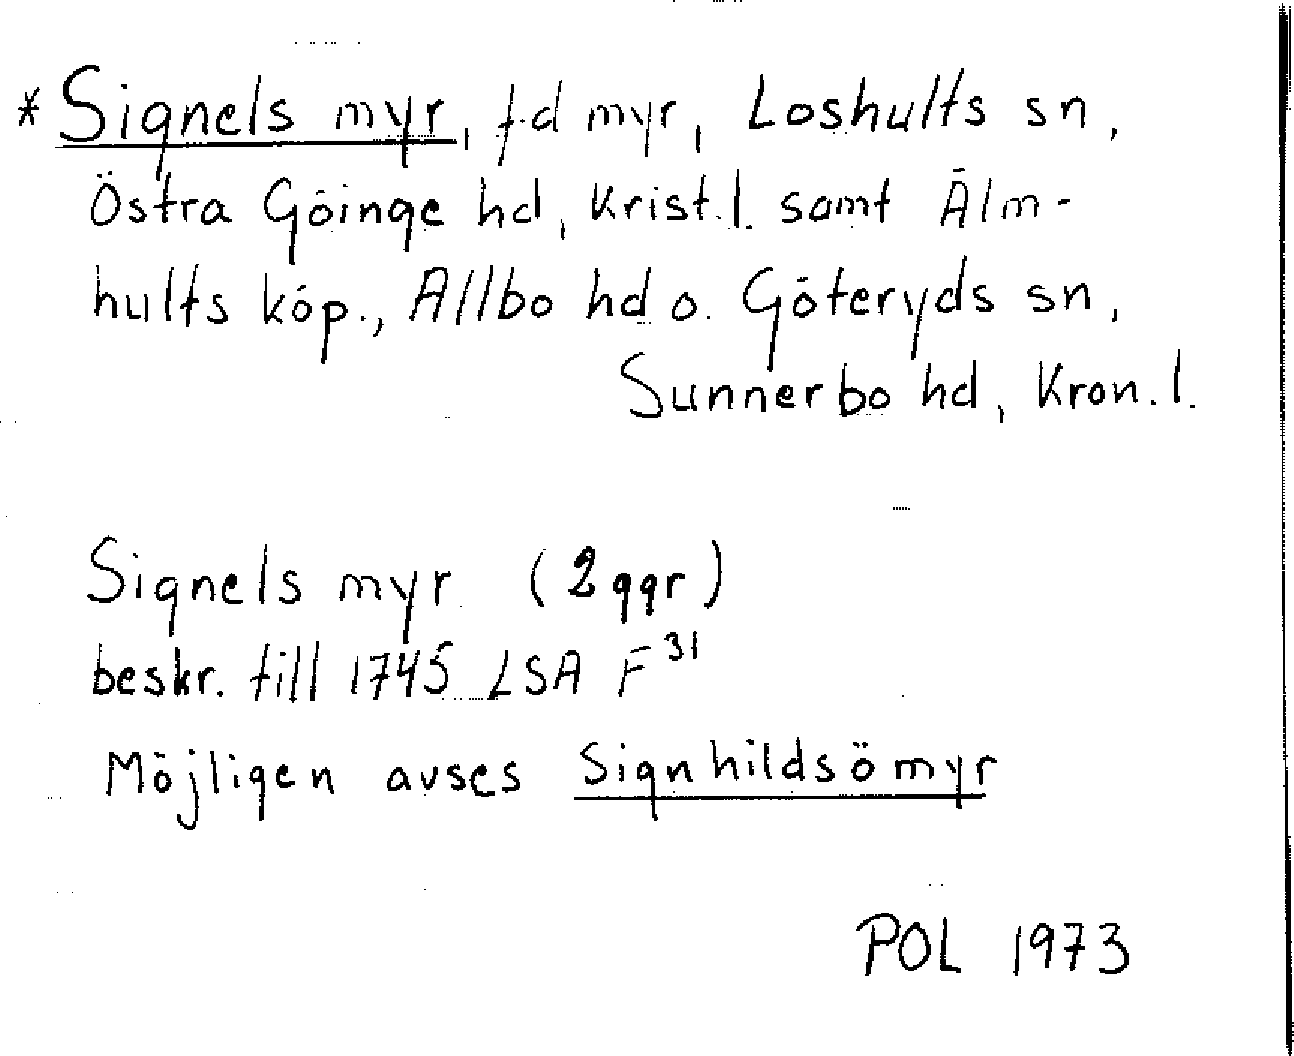 * Signels myr, f.d myr, Loshults sn,
Östra Göinge hd, Krist.l. samt Älm-
hults köp., Allbo hd o. Göteryds sn,
Sunnerbo hd, Kron.l.
Signels myr (2 ggr)
beskr. till 1745 LSA F 31
Möjligen avses Signhildsömyr
POL 1973